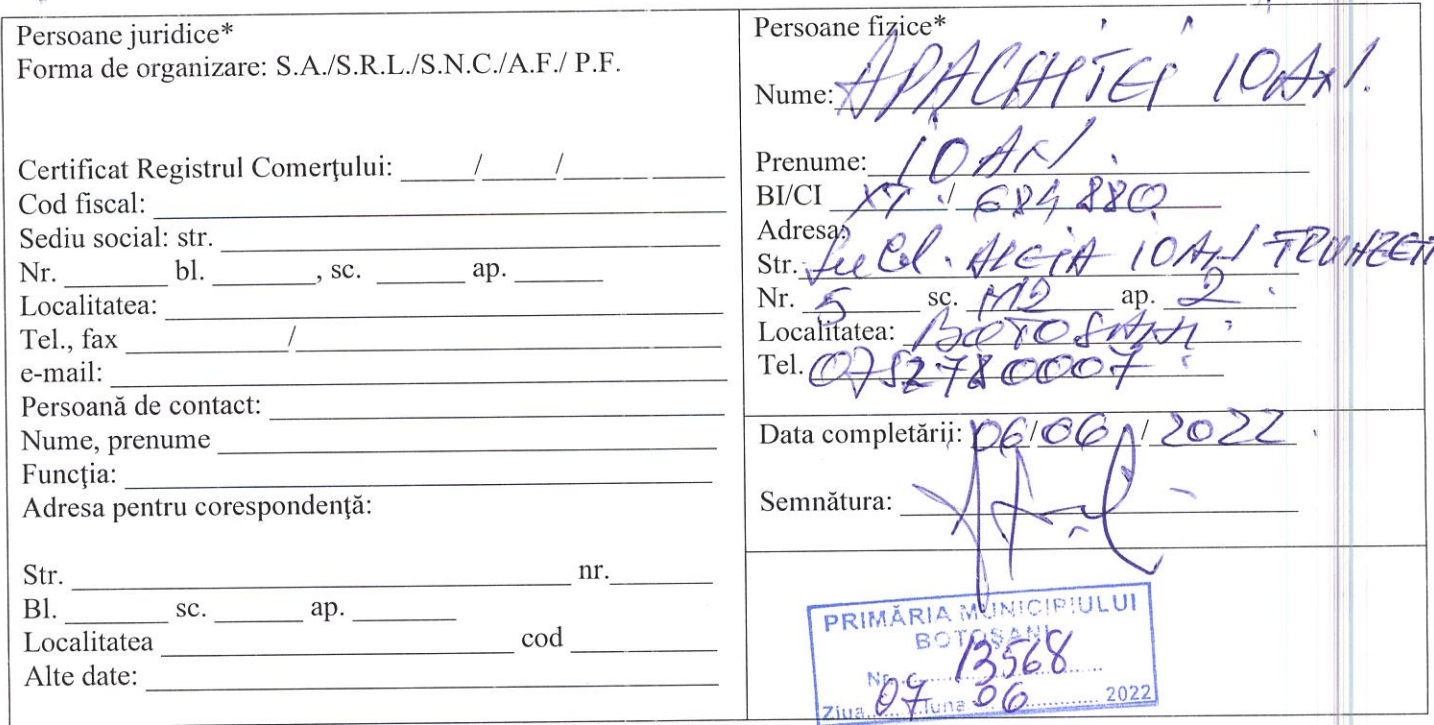 Persoane juridice*
Forma de organizare: S.A./S.R.L./S.N.C./A.F./ P.F.
Certificat Registrul Comerţului: ______/______/______ ______
Cod fiscal: ______
Sediu social: str. ______
Nr. ______ bl. ______, sc. ______ ap. ______
Localitatea: ______
Tel., fax ______/______
e-mail: ______
Persoană de contact: ______
Nume, prenume ______
Funcţia: ______
Adresa pentru corespondenţă:
Str. ______ nr. ______
Bl. ______ sc. ______ ap. ______
Localitatea ______ cod ______
Alte date: ______
Persoane fizice*
Nume: APACHITEI IOAN.
Prenume: IOAN.
BI/CI XT / 684 880
Adresa:
Str. ALEIA IOAN
Nr. 5 sc. M2 ap. 2
Localitatea: BOTOSANI
Tel. 0752780007
Data completării: 06/06/2022
Semnătura:
PRIMĂRIA MUNICIPIULUI
BOTOŞANI
Nr. 13568
Ziua 07 luna 06 2022